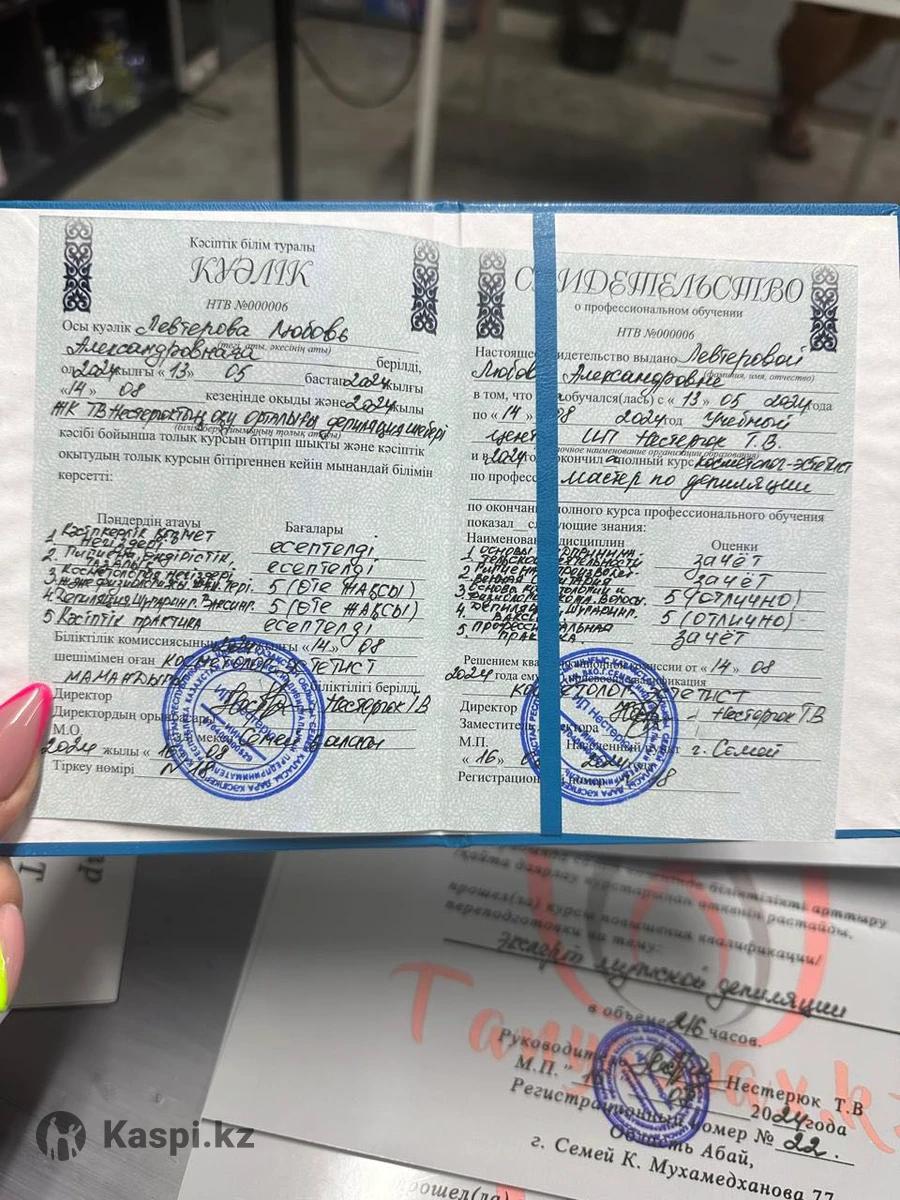 Кәсіптік білім туралы
КУӘЛІК
НТВ №000006
Осы куәлік Левтерова Любовь
(тегі, аты, әкесінің аты)
Александровнаға берілді,
ол 2024 жылғы « 13 » 05 бастап 2024 жылғы
« 14 » 08 кезеңінде оқыды және 2024 жылы
ЖК ТВ Нестерюктің оқу орталығы депиляция шебері
кәсібі бойынша толық курсын бітіріп шықты және кәсіптік
оқытудың толық курсын бітіргеннен кейін мынандай білімін
көрсетті:
Пәндердің атауы Бағалары
1. Кәсіпкерлік қызмет негіздері есептелді
2. Гигиена, өндірістік тазалық есептелді
3. Косметология негіздері 5 (ӨТЕ ЖАҚСЫ)
4. Депиляция Шугаринг. Ваксинг. 5 (ӨТЕ ЖАҚСЫ)
5. Кәсіптік практика есептелді
Біліктілік комиссиясының 2024 жылғы « 14 » 08
шешімімен оған косметолог эстетист
мамандығы біліктілігі берілді.
Директор Нестерюк ТВ
Директордың орынбасары
М.О. Елді мекен Семей қаласы
2024 жылы « 16 » 08
Тіркеу нөмірі N 18
СВИДЕТЕЛЬСТВО
о профессиональном обучении
НТВ №000006
Настоящее свидетельство выдано Левтеровой
(фамилия, имя, отчество)
Любовь Александровне
в том, что обучался(лась) с « 13 » 05 2024 года
по « 14 » 08 2024 год Учебный
центр ИП Нестерюк Т.В.
(полное наименование организации образования)
и в 2024 году окончил а полный курс косметолог-эстетист
по профессии мастер по депиляции
по окончании полного курса профессионального обучения
показал следующие знания:
Наименование дисциплин Оценки
1. Основы предпринимательской деятельности зачёт
2. Гигиена, производственная санитария зачёт
3. Основы косметологии и 5 (отлично)
4. Депиляция Шугаринг. Ваксинг 5 (отлично)
5. Профессиональная практика зачёт
Решением квалификационной комиссии от « 14 » 08
2024 года ему присвоена квалификация
косметолог-эстетист
Директор Нестерюк ТВ
Заместитель директора
М.П. Населенный пункт г. Семей
« 16 » 08 2024
Регистрационный номер 18
біліктілікті арттыру
қайта даярлау курстарынан өткенін растайды.
прошел(ла) курсы повышения квалификации/
переподготовки на тему:
Эксперт мужской депиляции
в объеме 216 часов.
Руководитель Нестерюк Т.В
М.П. 2024 года
Регистрационный номер № 22.
Область Абай,
г. Семей К. Мухамедханова 77
прошел(ла)
Kaspi.kz